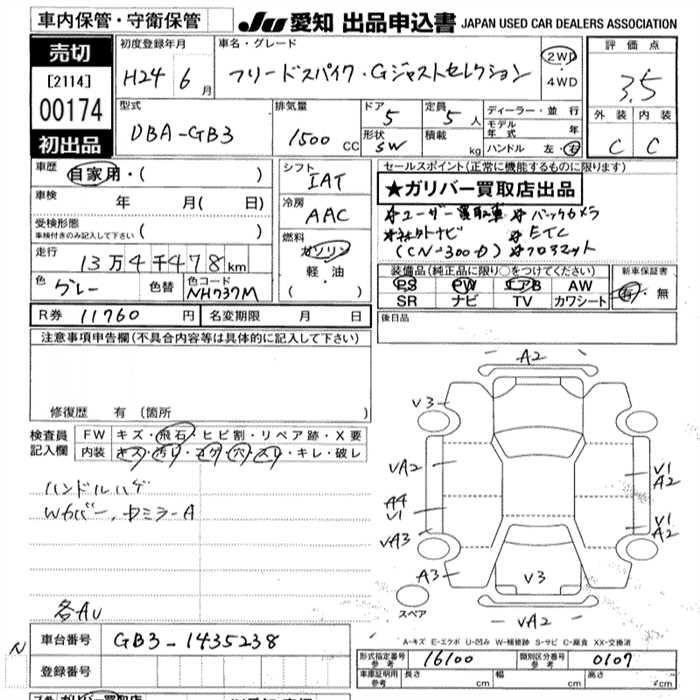 車内保管・守衛保管
JU 愛知 出品申込書 JAPAN USED CAR DEALERS ASSOCIATION
売切
[2114]
00174
初出品
初度登録年月
H24 6月
車名・グレード
フリードスパイク・Gジャストセレクション
2WD
・
4WD
評価点
3.5
外装 内装
C C
型式
DBA-GB3
排気量
1500 CC
ドア
5
形状
SW
定員
5人
積載
kg
ディーラー・並行
モデル年式 年
ハンドル 左・右
車歴
自家用・( )
車検 年 月( 日)
受検形態
車検付きのみ記入して下さい ( )
走行
13万4千478km
色 グレー 色替 色コード NH737M
シフト
IAT
冷房
AAC
燃料
ガソリン
軽・油
( )
セールスポイント(正常に機能するものに限ります)
★ガリバー買取店出品
*ユーザー買取車 *バックカメラ
*社外ナビ *ETC
*フロアマット
装備品(純正品に限り○をつけてください)
PS PW エアB AW
SR ナビ TV カワシート
新車保証書
有・無
R券 11760円 名変期限 月 日
後日品
注意事項申告欄(不具合内容等は具体的に記入して下さい)
修復歴 有(箇所 )
検査員記入欄
FW キズ・飛石・ヒビ割・リペア跡・X要
内装 キズ・汚れ・コゲ・穴・スレ・キレ・破レ
ハンドルハゲ
Wカバー、ドミラーA
各AU
A2
V3
VA2
A4
V1
VA3
A3
V1
A2
V1
A2
V3
VA2
スペア
A-キズ E-エクボ U-凹み W-補修跡 S-サビ C-腐食 XX-交換済
N
車台番号 GB3-1435238
登録番号
形式指定番号 参考 16100 類別区分番号 参考 0107
車庫証明用 参考 長さ cm 幅 cm 高さ cm
ガリバー買取店